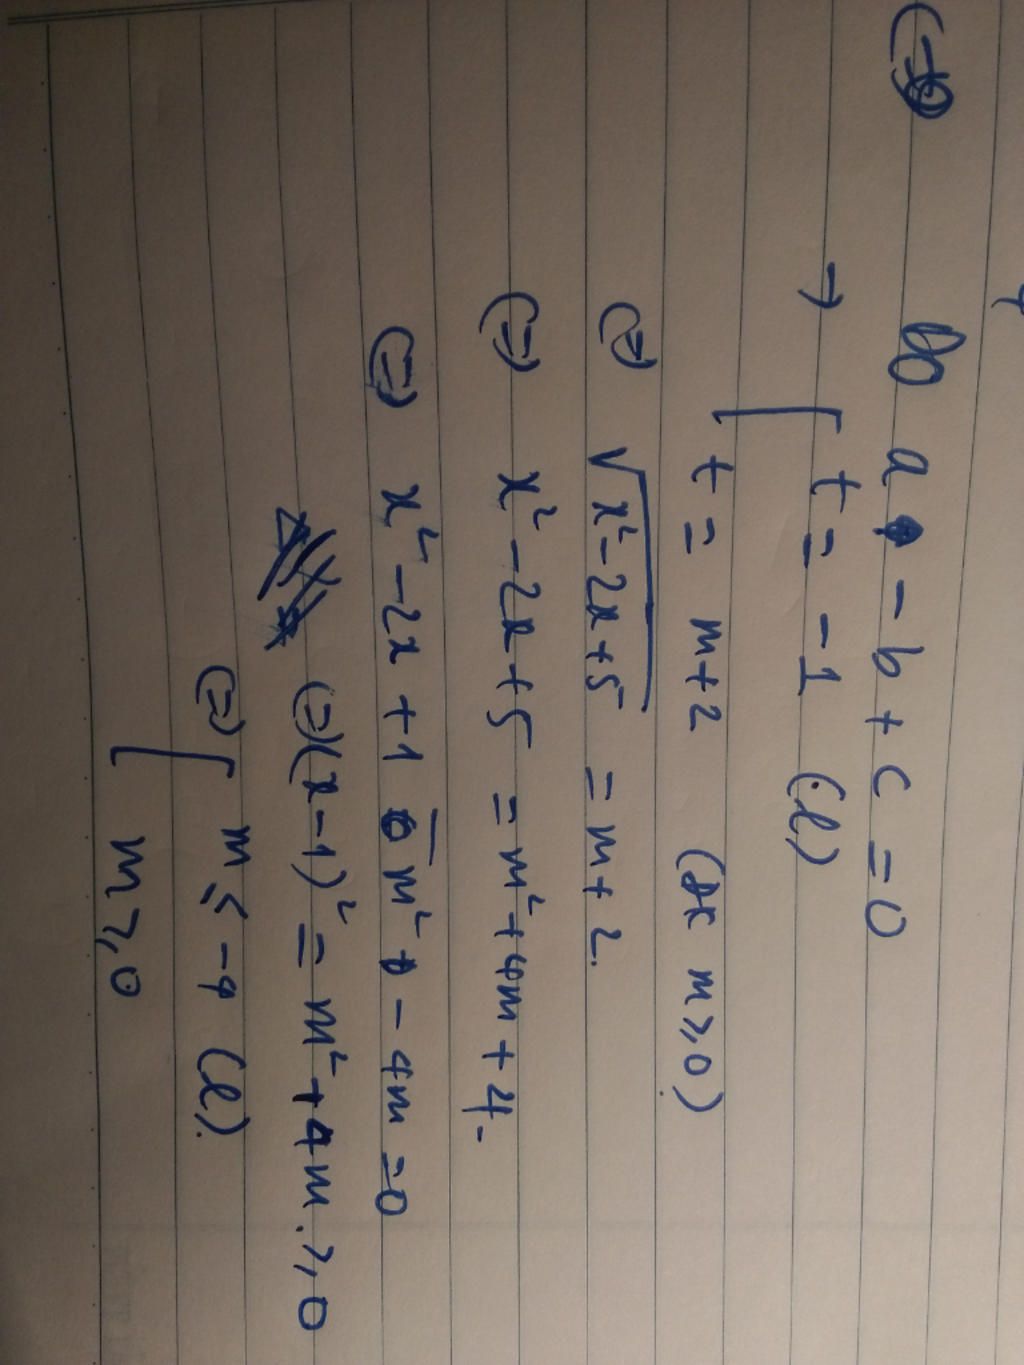 (=)
Do a - b + c = 0
→ [ t = -1 (l)
t = m+2 (ĐK m ≥ 0)
(=) √(x² - 2x + 5) = m + 2.
(=) x² - 2x + 5 = m² + 4m + 4.
(=) x² - 2x + 1 - m² - 4m = 0
(=) (x - 1)² = m² + 4m. ≥ 0
(=) [ m ≤ -4 (l).
m ≥ 0